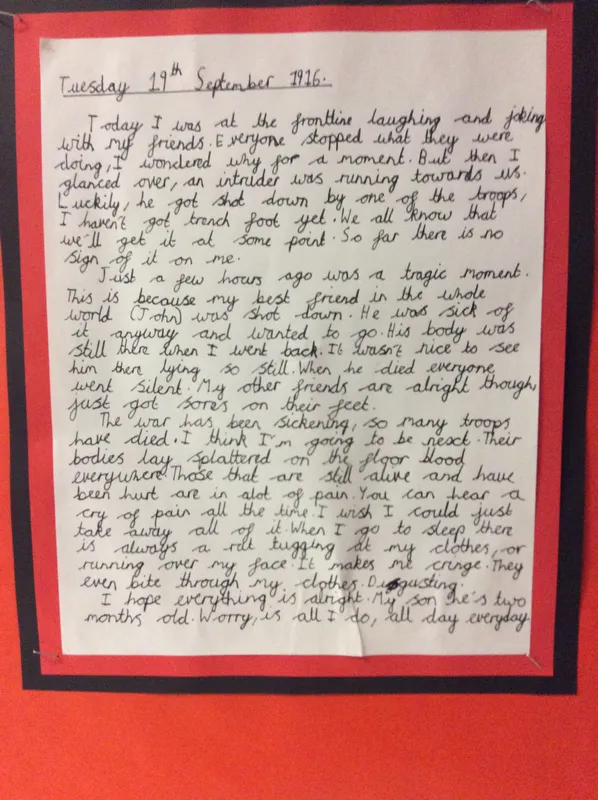 Tuesday 19th September 1916.
Today I was at the frontline laughing and joking
with my friends. Everyone stopped what they were
doing, I wondered why for a moment. But then I
glanced over, an intruder was running towards us.
Luckily, he got shot down by one of the troops,
I haven't got trench foot yet. We all know that
we'll get it at some point. So far there is no
sign of it on me.
Just a few hours ago was a tragic moment.
This is because my best friend in the whole
world (John) was shot down. He was sick of
it anyway and wanted to go. His body was
still there when I went back. It wasn't nice to see
him there lying so still. When he died everyone
went silent. My other friends are alright though,
just got sores on their feet.
The war has been sickening, so many troops
have died. I think I'm going to be next. Their
bodies lay splattered on the floor blood
everywhere. Those that are still alive and have
been hurt are in alot of pain. You can hear a
cry of pain all the time. I wish I could just
take away all of it. When I go to sleep there
is always a rat tugging at my clothes, or
running over my face. It makes me cringe. They
even bite through my clothes. Disgusting.
I hope everything is alright. My son he's two
months old. Worry, is all I do, all day everyday